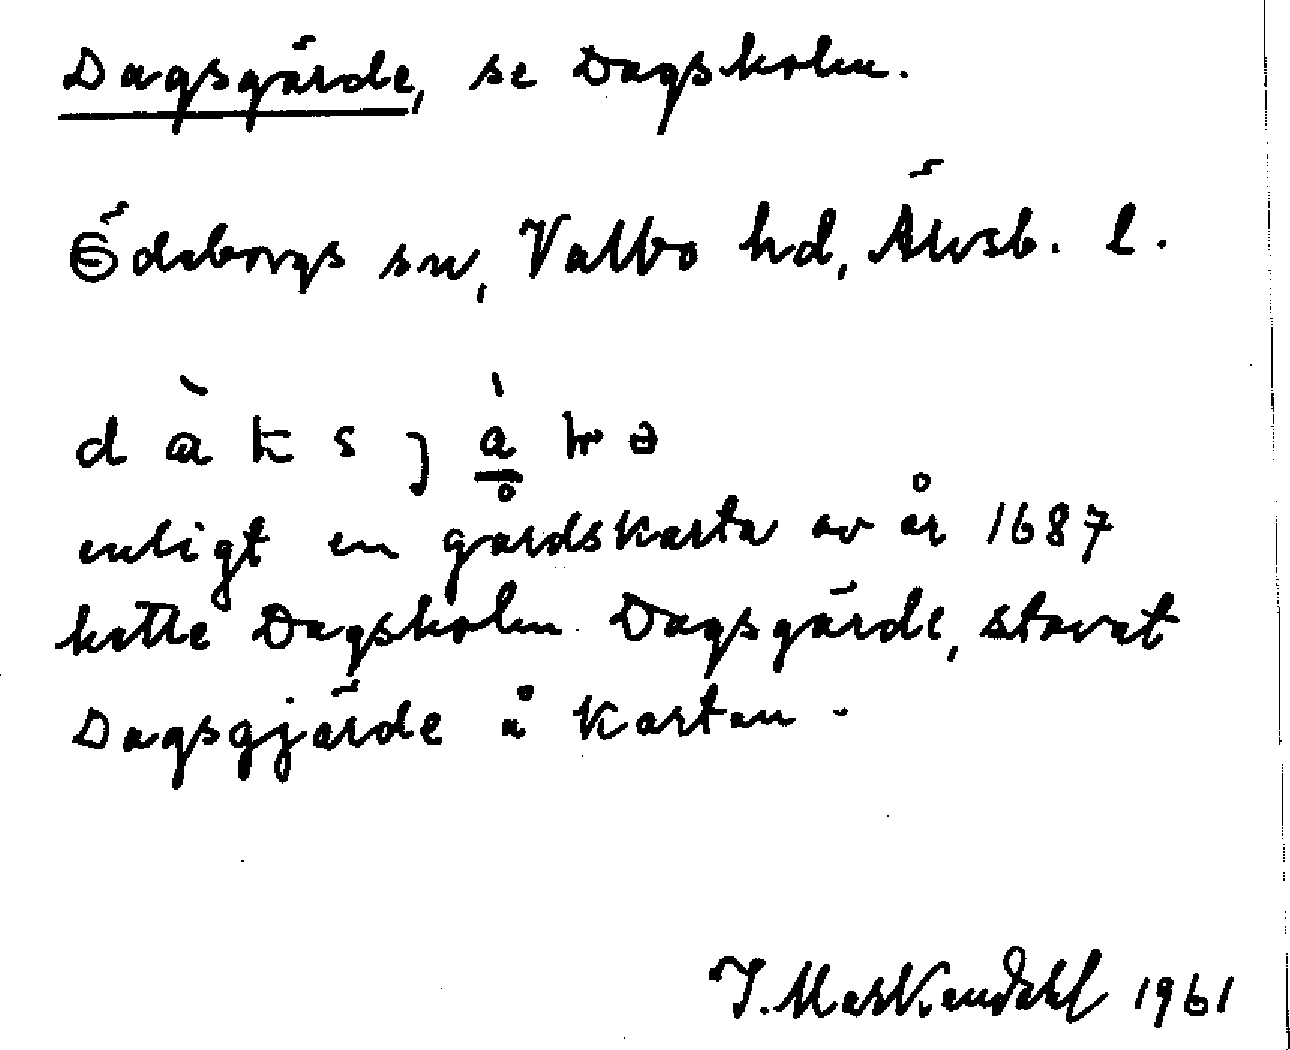 Dagsgärde, se Dagsholm.
Ödeborgs sn, Valbo hd, Älvsb. l.
enligt en gårdskarta av år 1687
hette Dagsholm Dagsgärde, stavat
Dagsgjärde å kartan.
1961